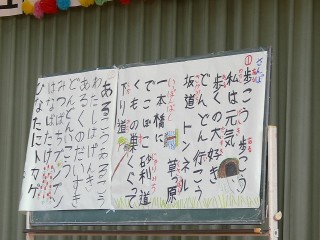 さんぽ
①歩こう 歩こう
私は元気
歩くの大好き
どんどん行こう
坂道 トンネル
草っ原
一本橋に
でこぼこ砂利道
くもの巣くぐって
下り道
あるこうあるこう
わたしはげんき
あるくのだいすき
どんどんいこう
みつばちブンブン
はなばたけ
ひなたにトカゲ